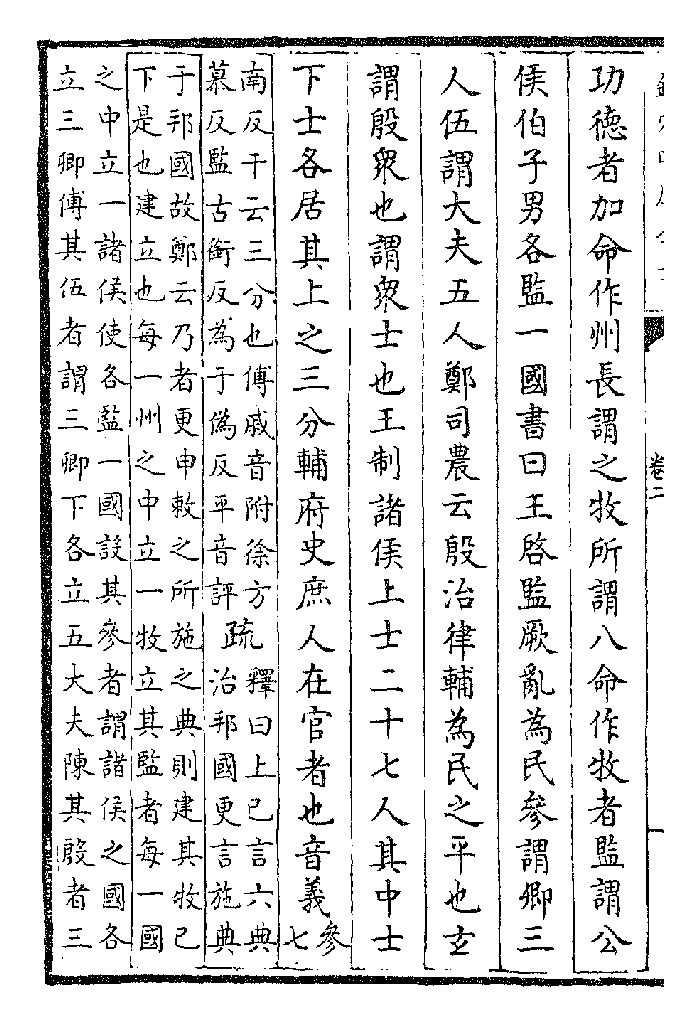 卷二
功德者加命作州長謂之牧所謂八命作牧者監謂公
侯伯子男各監一國書曰王啓監厥亂為民參謂卿三
人伍謂大夫五人鄭司農云殷治律輔為民之平也玄
謂殷衆也謂衆士也王制諸侯上士二十七人其中士
下士各居其上之三分輔府史庶人在官者也音義參七
南反干云三分也傅戚音附徐方
慕反監古銜反為于偽反平音評疏釋曰上已言六典
治邦國更言施典
于邦國故鄭云乃者更申敕之所施之典則建其牧已
下是也建立也每一州之中立一牧立其監者每一國
之中立一諸侯使各監一國設其參者謂諸侯之國各
立三卿傅其伍者謂三卿下各立五大夫陳其殷者三